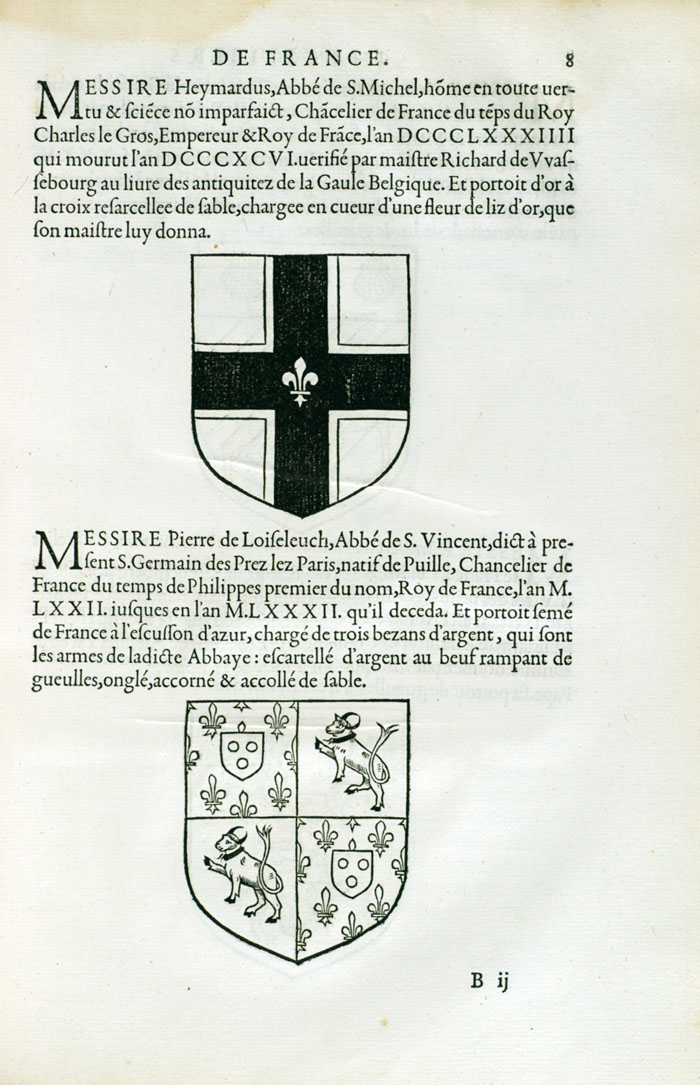 DE FRANCE. 8
MESSIRE Heymardus, Abbé de S. Michel, hõme en toute uer-
tu & ſciẽce nõ imparfaict, Chãcelier de France du tẽps du Roy
Charles le Gros, Empereur & Roy de Frãce, l'an DCCCLXXXIIII
qui mourut l'an DCCCXCVI. uerifié par maiſtre Richard de Vvaſ-
ſebourg au liure des antiquitez de la Gaule Belgique. Et portoit d'or à
la croix reſarcellee de ſable, chargee en cueur d'une fleur de liz d'or, que
ſon maiſtre luy donna.
MESSIRE Pierre de Loiſeleuch, Abbé de S. Vincent, dict à pre-
ſent S. Germain des Prez lez Paris, natif de Puille, Chancelier de
France du temps de Philippes premier du nom, Roy de France, l'an M.
LXXII. iuſques en l'an M.LXXXII. qu'il deceda. Et portoit ſemé
de France à l'eſcuſſon d'azur, chargé de trois bezans d'argent, qui ſont
les armes de ladicte Abbaye : eſcartellé d'argent au beuf rampant de
gueulles, onglé, accorné & accollé de ſable.
B ij